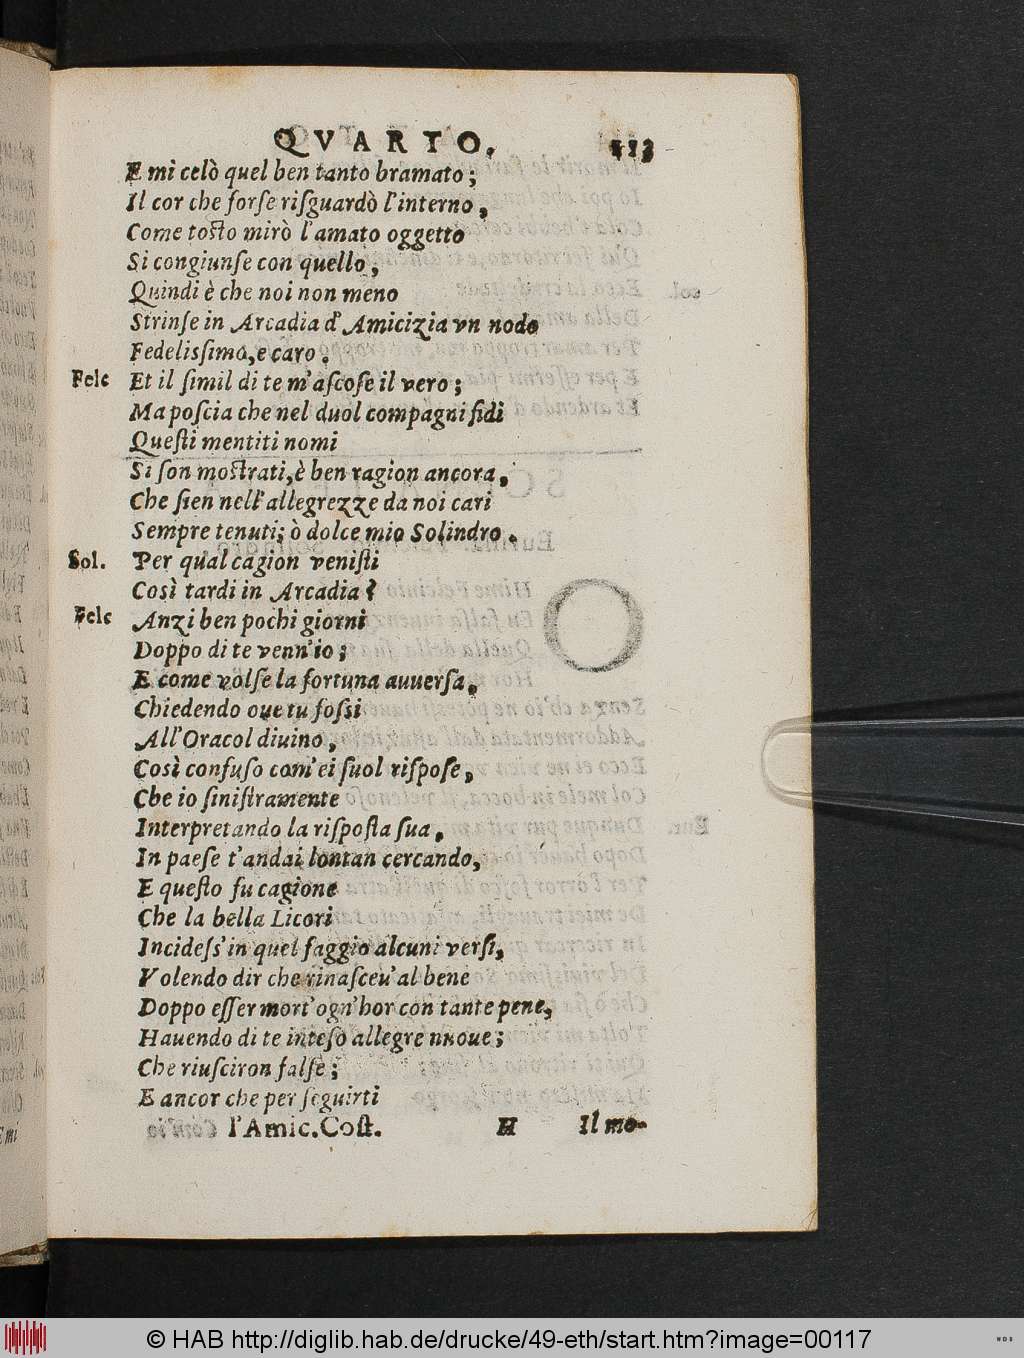 QVARTO. 113
E mi celò quel ben tanto bramato;
Il cor che forse riſguardò l'interno,
Come toſto mirò l'amato oggetto
Si congiunſe con quello,
Quindi è che noi non meno
Strinſe in Arcadia d'Amicizia vn nodo
Fedeliſsimo, e caro.
Felc Et il ſimil di te m'aſcoſe il vero;
Ma poſcia che nel duol compagni fidi
Queſti mentiti nomi
Si ſon moſtrati, è ben ragion ancora,
Che ſien nell'allegrezze da noi cari
Sempre tenuti; ò dolce mio Solindro.
Sol. Per qual cagion veniſti
Così tardi in Arcadia?
Felc Anzi ben pochi giorni
Doppo di te venn'io;
E come volſe la fortuna auuerſa,
Chiedendo oue tu foſsi
All'Oracol diuino,
Così confuſo com'ei ſuol riſpoſe,
Che io ſiniſtramente
Interpretando la riſpoſta ſua,
In paeſe t'andai lontan cercando,
E queſto fu cagione
Che la bella Licori
Incideſs'in quel faggio alcuni verſi,
Volendo dir che rinaſceu'al bene
Doppo eſſer mort'ogn'hor con tante pene,
Hauendo di te inteſo allegre nuoue;
Che riuſciron falſe;
E ancor che per ſeguirti
l'Amic.Coſt. H Il mo-
Emi
© HAB http://diglib.hab.de/drucke/49-eth/start.htm?image=00117